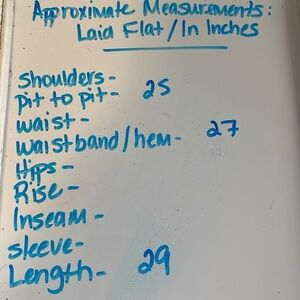 Approximate Measurements:
Laid Flat/In Inches
Shoulders-
pit to pit- 25
waist-
waistband/hem- 27
Hips-
Rise-
Inseam-
sleeve-
Length- 29